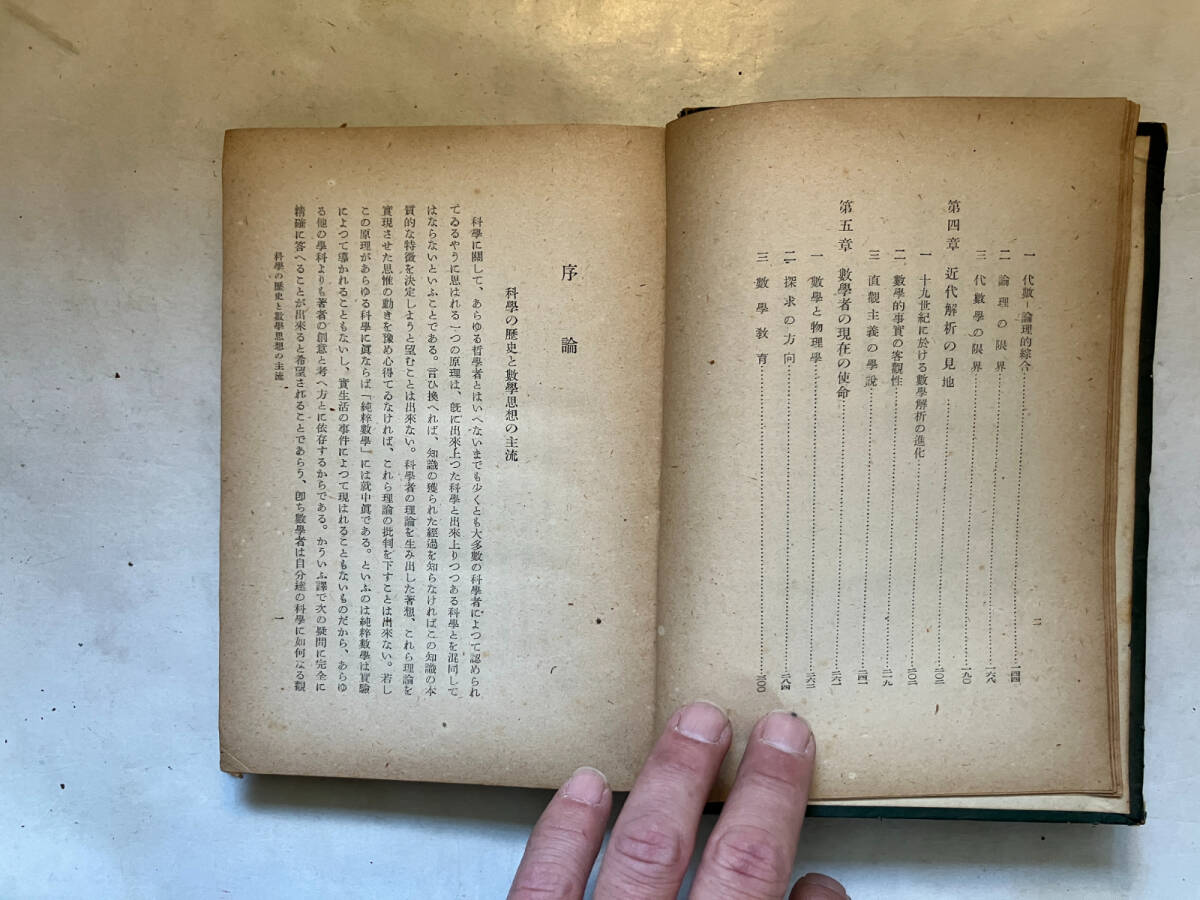 一 代數–論理的綜合……一四四
二 論理の限界……一六八
三 代數學の限界……一九〇
第四章 近代解析の見地……二〇三
一 十九世紀に於ける數學解析の進化……二〇三
二 數學的事實の客觀性……二一九
三 直觀主義の學說……二四一
第五章 數學者の現在の使命……二六二
一 數學と物理學……二六二
二 探求の方向……二八四
三 數學敎育……三〇〇
二
序論
科學の歷史と數學思想の主流
科學に關して、あらゆる哲學者とはいへないまでも少くとも大多數の科學者によつて認められ
てゐるやうに思はれる一つの原理は、旣に出來上つた科學と出來上りつつある科學とを混同して
はならないといふことである。言ひ換へれば、知識の獲られた經過を知らなければこの知識の本
質的な特徵を決定しようと望むことは出來ない。科學者の理論を生み出した著想、これら理論を
實現させた思惟の動きを豫め心得てゐなければ、これら理論の批判を下すことは出來ない。若し
この原理があらゆる科學に眞ならば「純粹數學」には就中眞である。といふのは純粹數學は實驗
によつて導かれることもないし、實生活の事件によつて現はれることもないものだから、あらゆ
る他の學科よりも著者の創意と考へ方とに依存するからである。かういふ譯で次の疑問に完全に
精確に答へることが出來ると希望されることであらう、卽ち數學者は自分達の科學に如何なる觀
科學の歷史と數學思想の主流
一